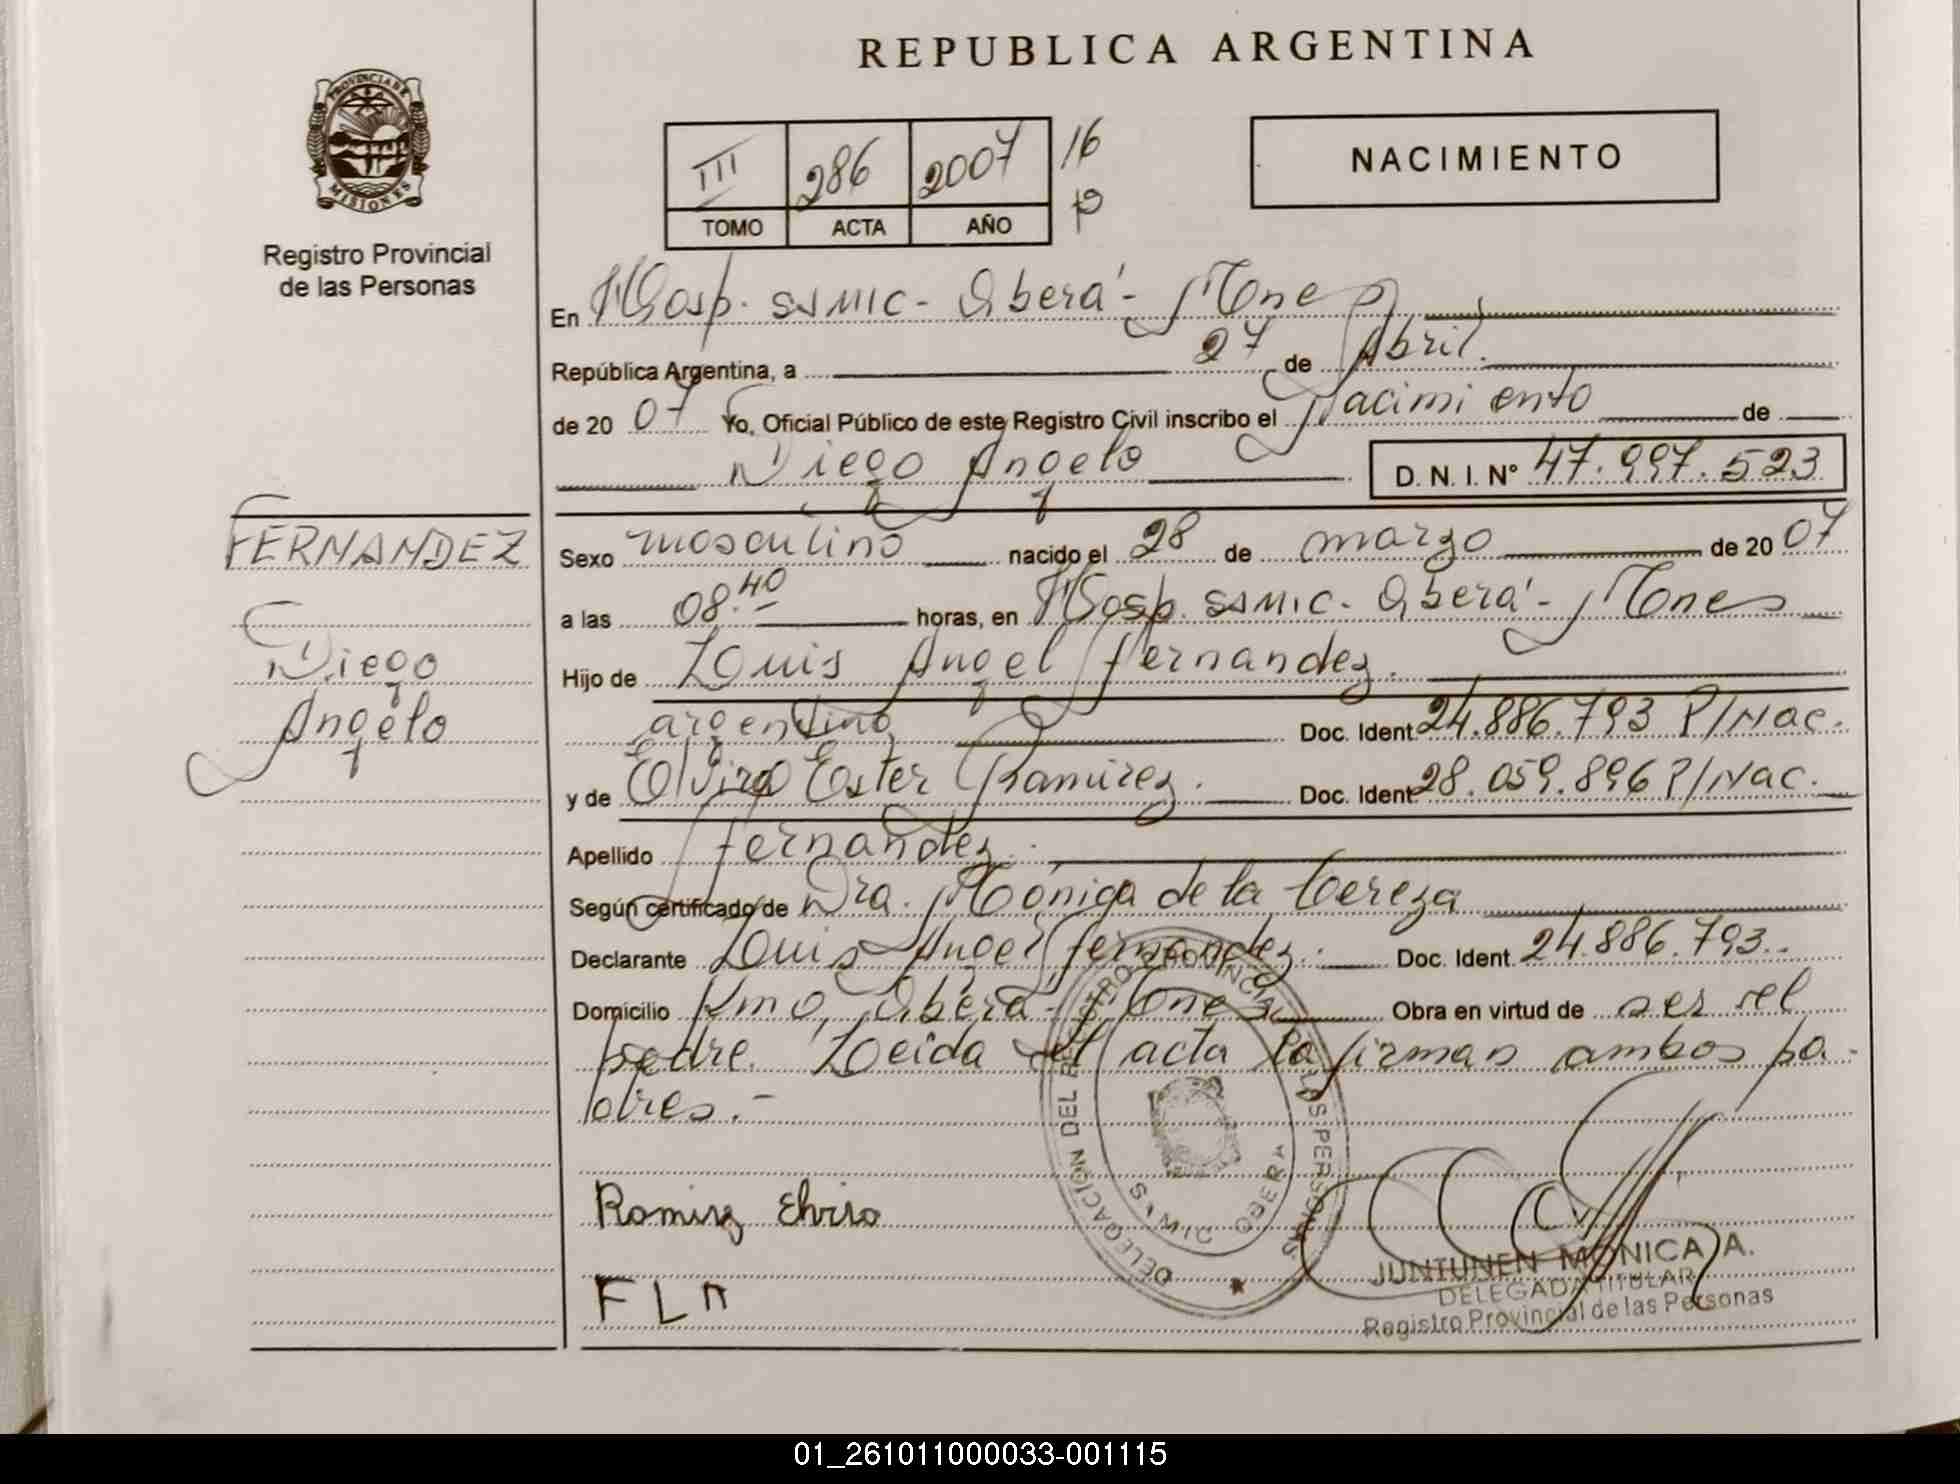 REPUBLICA ARGENTINA
PROVINCIA DE
MISIONES
Registro Provincial
de las Personas
III 286 2007 16
TOMO ACTA AÑO
NACIMIENTO
En Hosp. SSMIC - Oberá - Mnes
República Argentina, a 27 de Abril.
de 20 07 Yo, Oficial Público de este Registro Civil inscribo el Nacimiento de
Diego Angelo D. N. I. N° 47.997.523
FERNANDEZ
Diego
Angelo
Sexo masculino nacido el 28 de marzo de 20 07
a las 08.40 horas, en Hosp. SSMIC - Oberá - Mnes
Hijo de Luis Angel Fernandez.
argentino Doc. Ident. 24.886.793 P/Nac.
y de Elvira Ester Ramirez. Doc. Ident. 28.059.896 P/Nac.
Apellido Fernandez.
Según certificado de Dra. Mónica de la Cereza
Declarante Luis Angel Fernandez. Doc. Ident. 24.886.793.-
Domicilio Kmo, Oberá - Mnes Obra en virtud de ser el
padre. Leida el acta la firman ambos pa-
dres.-
DELEGACION DEL REGISTRO PROVINCIAL DE LAS PERSONAS
OBERA
Ramirz Elvira
F L A
JUNTUNEN MONICA A.
DELEGADA TITULAR
Registro Provincial de las Personas
01_261011000033-001115